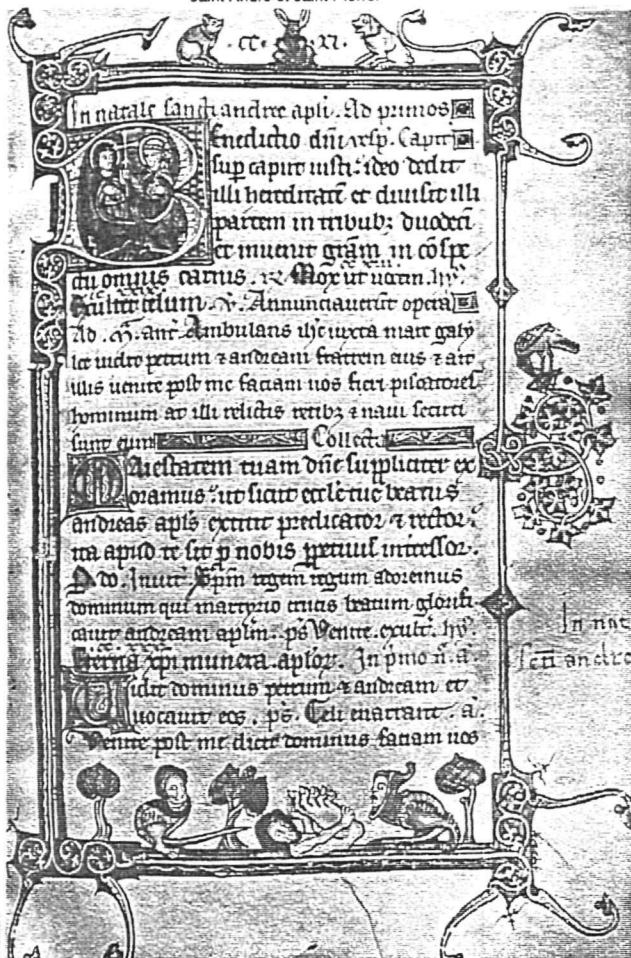 ·cc· ·xi·
In natale sancti andree apli. Ad primas
Benedictio dñi vesp. Capit
sup caput iusti. ideo dedit
illi hereditatē et diuisit illi
partem in tribubz duodeci
et inuenit grām in cōspe
ctu omnius carnis. Mox ut uocem. hy
Exultet celum. v. Annunciauerūt opera
Ad. M. ant. Ambulans ihc iuxta mare galy
lee uidit petrum z andream fratrem eius z ait
illis uenite post me faciam uos fieri piscatores
hominum at illi relictis retibz z naui secuti
sunt eum Collecta
Maiestatem tuam dñe suppliciter ex
oramus ut sicut eccl'e tue beatus
andreas apl's extitit predicator z rector.
ita apud te sit p nobis ppetuus intercessor.
Ado. Inuit. Xpm regem regum adoremus
dominum qui martyrio crucis beatum glorifi
cauit andream aplm. ps Venite. exult. hy.
Eterna xpi munera. aplor. In pmo n. a.
Uidit dominus petrum z andream et
uocauit eos. ps. Celi enarrant. a.
Venite post me dicit dominus faciam uos
In nat
scti andre